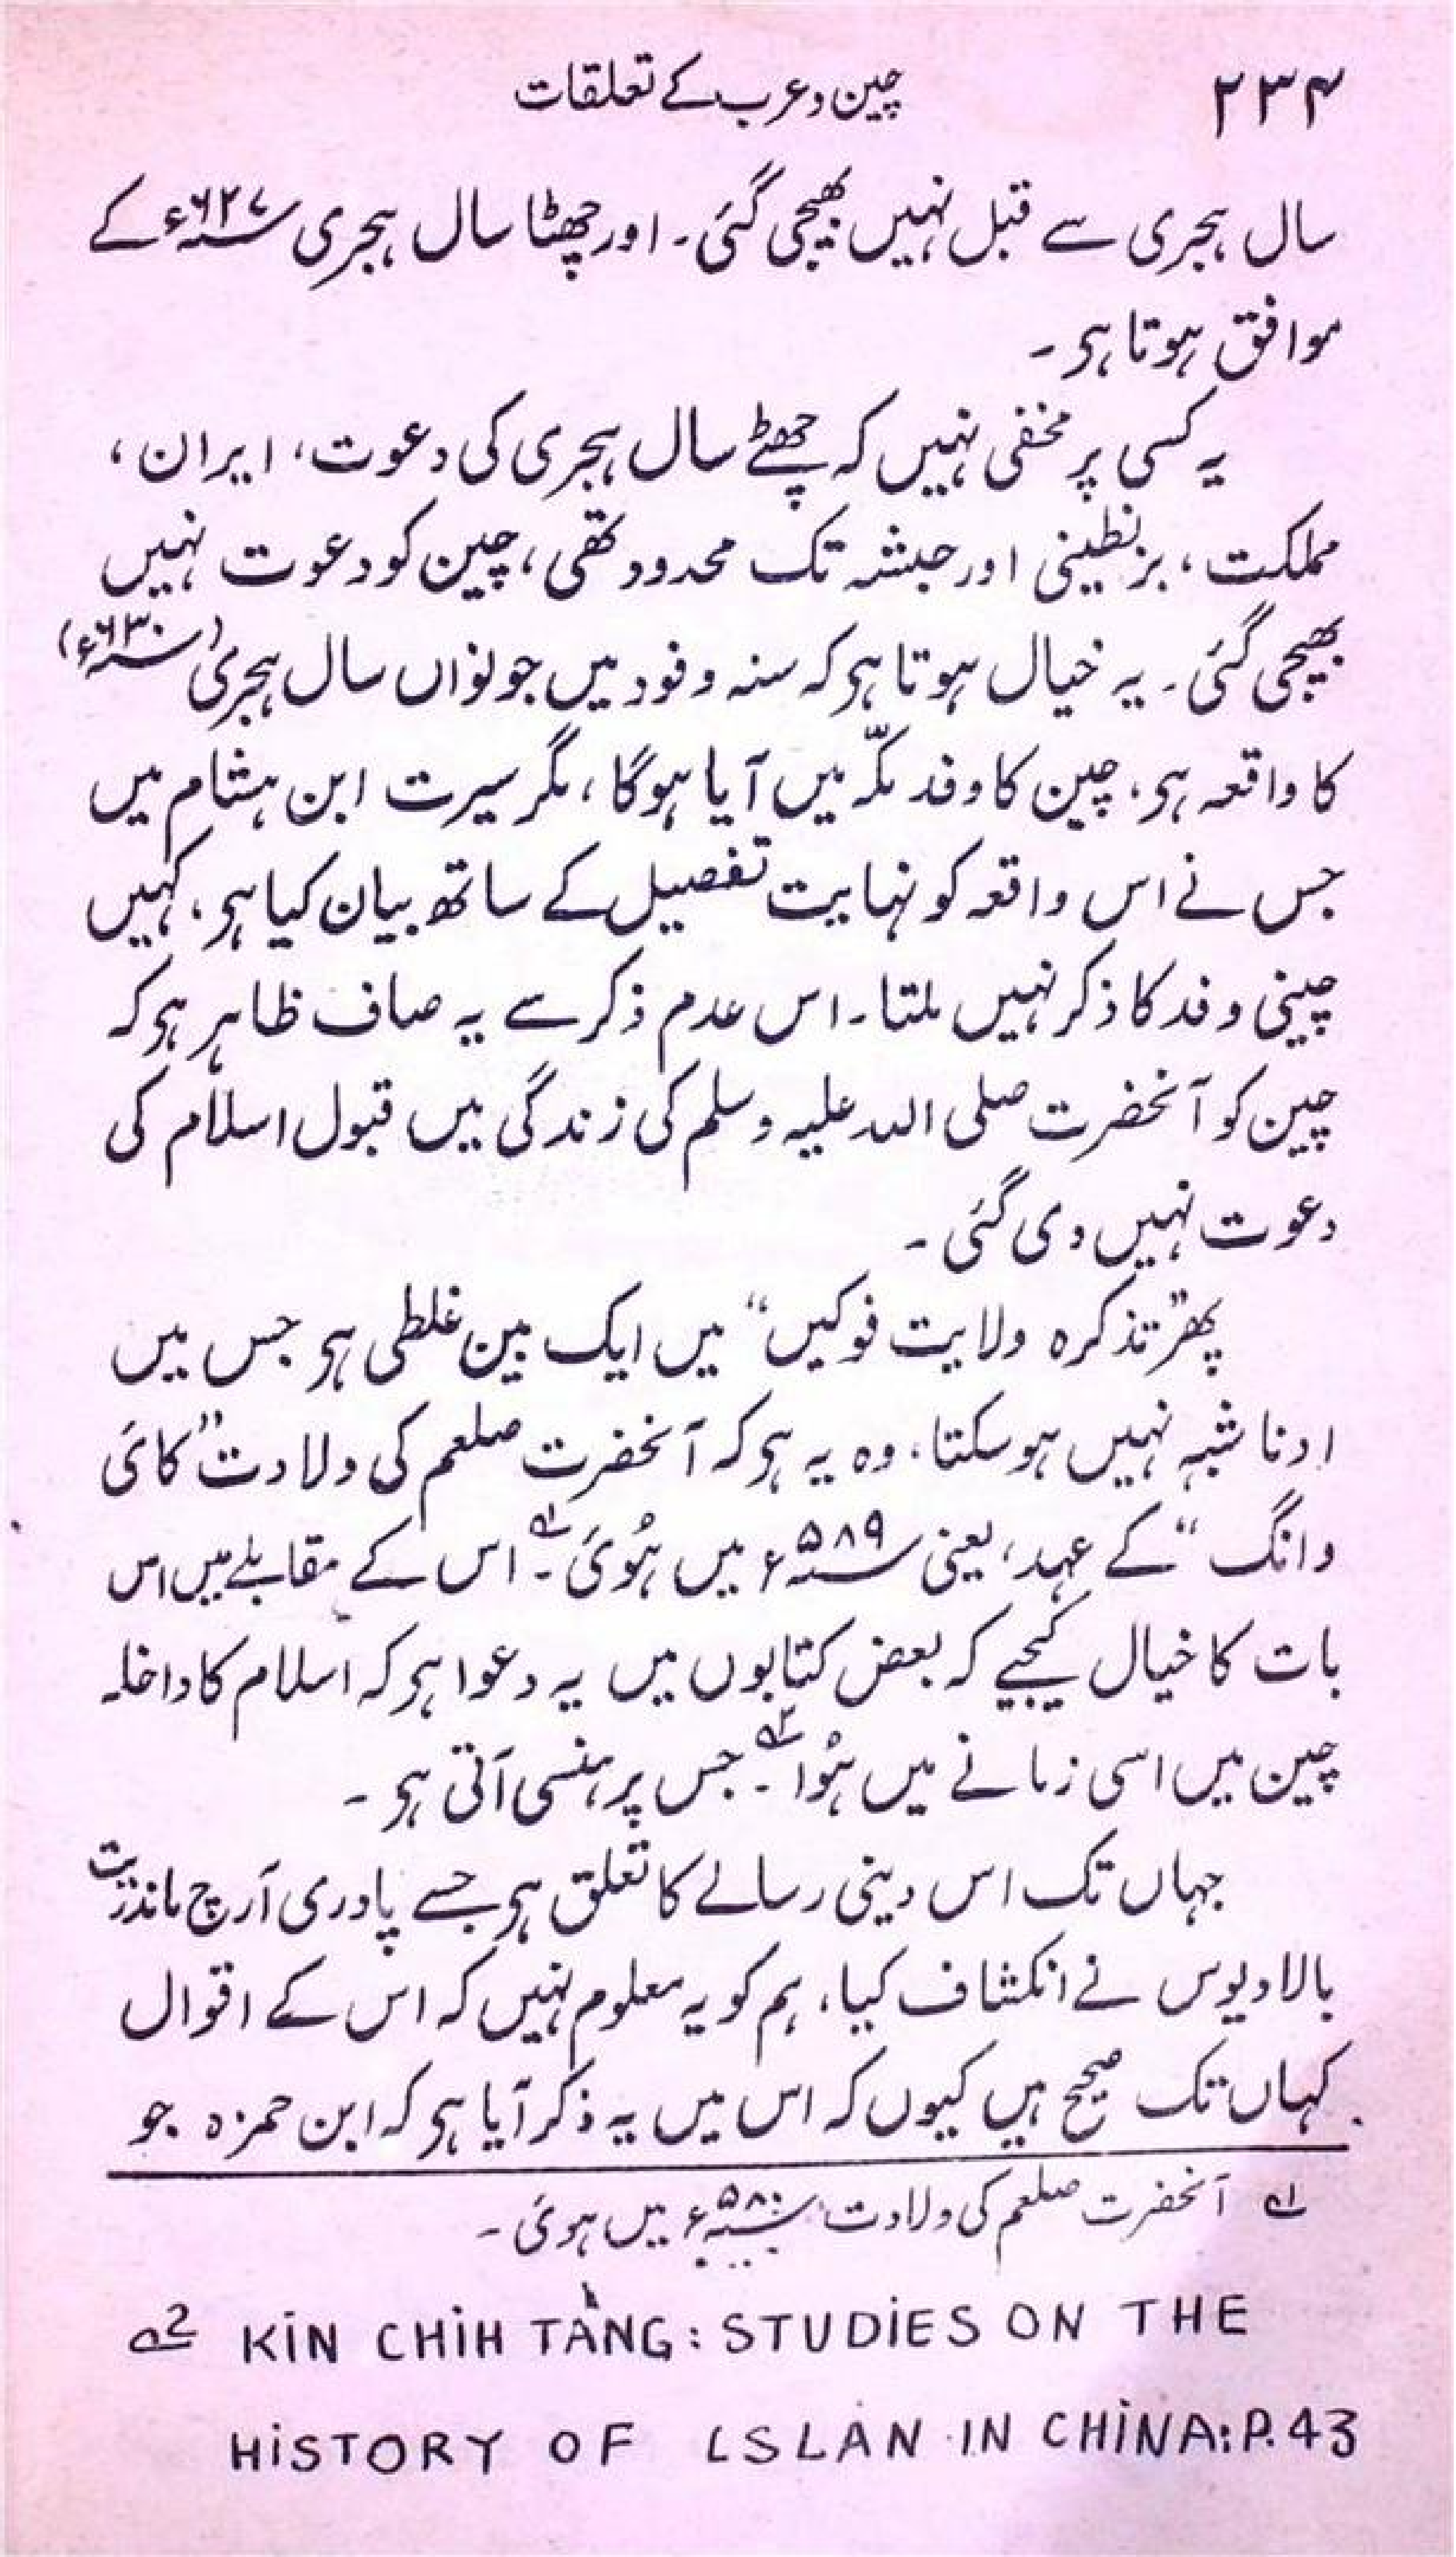 ۲۳۴ چین و عرب کے تعلقات
سال ہجری سے قبل نہیں بھیجی گئی۔ اور چھٹا سال ہجری ۶۲۷؁ء کے
موافق ہوتا ہی۔
یہ کسی پر مخفی نہیں کہ چھٹے سال ہجری کی دعوت، ایران،
مملکت، بزنطینی اور حبشہ تک محدود تھی، چین کو دعوت نہیں
بھیجی گئی۔ یہ خیال ہوتا ہی کہ سنہ وفود میں جو نواں سال ہجری (۶۳۰؁ء)
کا واقعہ ہی، چین کا وفد مکّہ میں آیا ہوگا، مگر سیرت ابن ہشام میں
جس نے اس واقعہ کو نہایت تفصیل کے ساتھ بیان کیا ہی، کہیں
چینی وفد کا ذکر نہیں ملتا۔ اس عدم ذکر سے یہ صاف ظاہر ہی کہ
چین کو آنحضرت صلی اللہ علیہ وسلم کی زندگی میں قبول اسلام کی
دعوت نہیں دی گئی۔
پھر ”تذکرہ ولایت فوکیں“ میں ایک بین غلطی ہی جس میں
ادنا شبہ نہیں ہوسکتا، وہ یہ ہی کہ آنحضرت صلعم کی ولادت ”کائ
وانگ“ کے عہد، یعنی ۵۸۹؁ء میں ہُوئی۔؎۱ اس کے مقابلے میں اس
بات کا خیال کیجیے کہ بعض کتابوں میں یہ دعوا ہی کہ اسلام کا داخلہ
چین میں اسی زمانے میں ہُوا؎۲۔ جس پر ہنسی آتی ہی۔
جہاں تک اس دینی رسالے کا تعلق ہی جسے پادری آرچ ماندریت
بالادیوس نے انکشاف کیا، ہم کو یہ معلوم نہیں کہ اس کے اقوال
کہاں تک صحیح ہیں کیوں کہ اس میں یہ ذکر آیا ہی کہ ابن حمزہ جو
؎۱ آنحضرت صلعم کی ولادت ۵۸۰؁ء میں ہوئی۔
؎2 KiN CHiH TANG: STUDiES ON THE
HiSTORY OF LSLAN IN CHiNA: P. 43